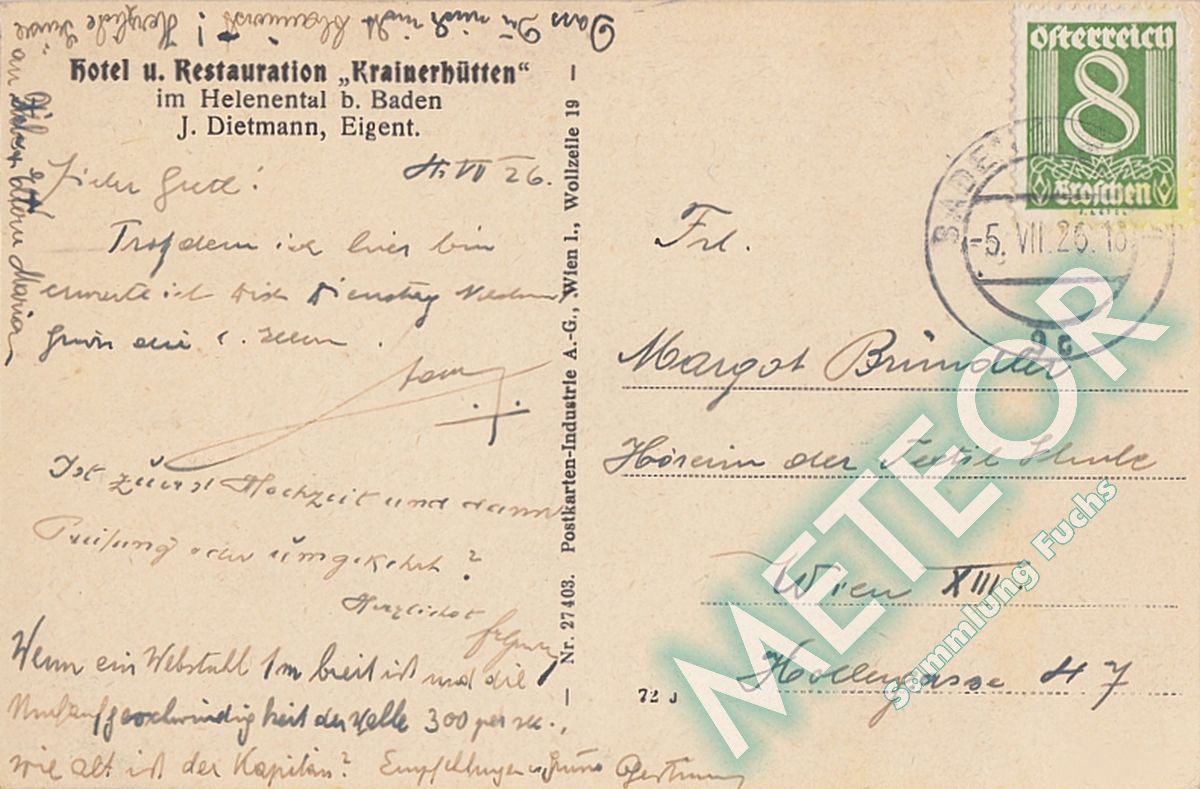 Dass Du mich nicht blamierst! Herzliche Grüße
an Deine Eltern Maria
Hotel u. Restauration „Krainerhütten“
im Helenental b. Baden
J. Dietmann, Eigent.
4. VII 26.
Trotzdem ich hier bin
erwarte ich Dich Dienstag
Ist zuerst Hochzeit und dann
Prüfung oder umgekehrt?
Herzlichst
Wenn ein Webstuhl 1m breit ist und die
Umlaufgeschwindigkeit der Welle 300 per sek.,
wie alt ist der Kapitän? Empfehlungen
Nr. 27403. Postkarten-Industrie A.-G., Wien I., Wollzeile 19
72 J
Österreich
8
Groschen
BADEN
-5. VII. 26. 18
Frl.
Margot Bründler
Hörerin der Textil Schule
Wien XIII.
47
METEOR
Sammlung Fuchs